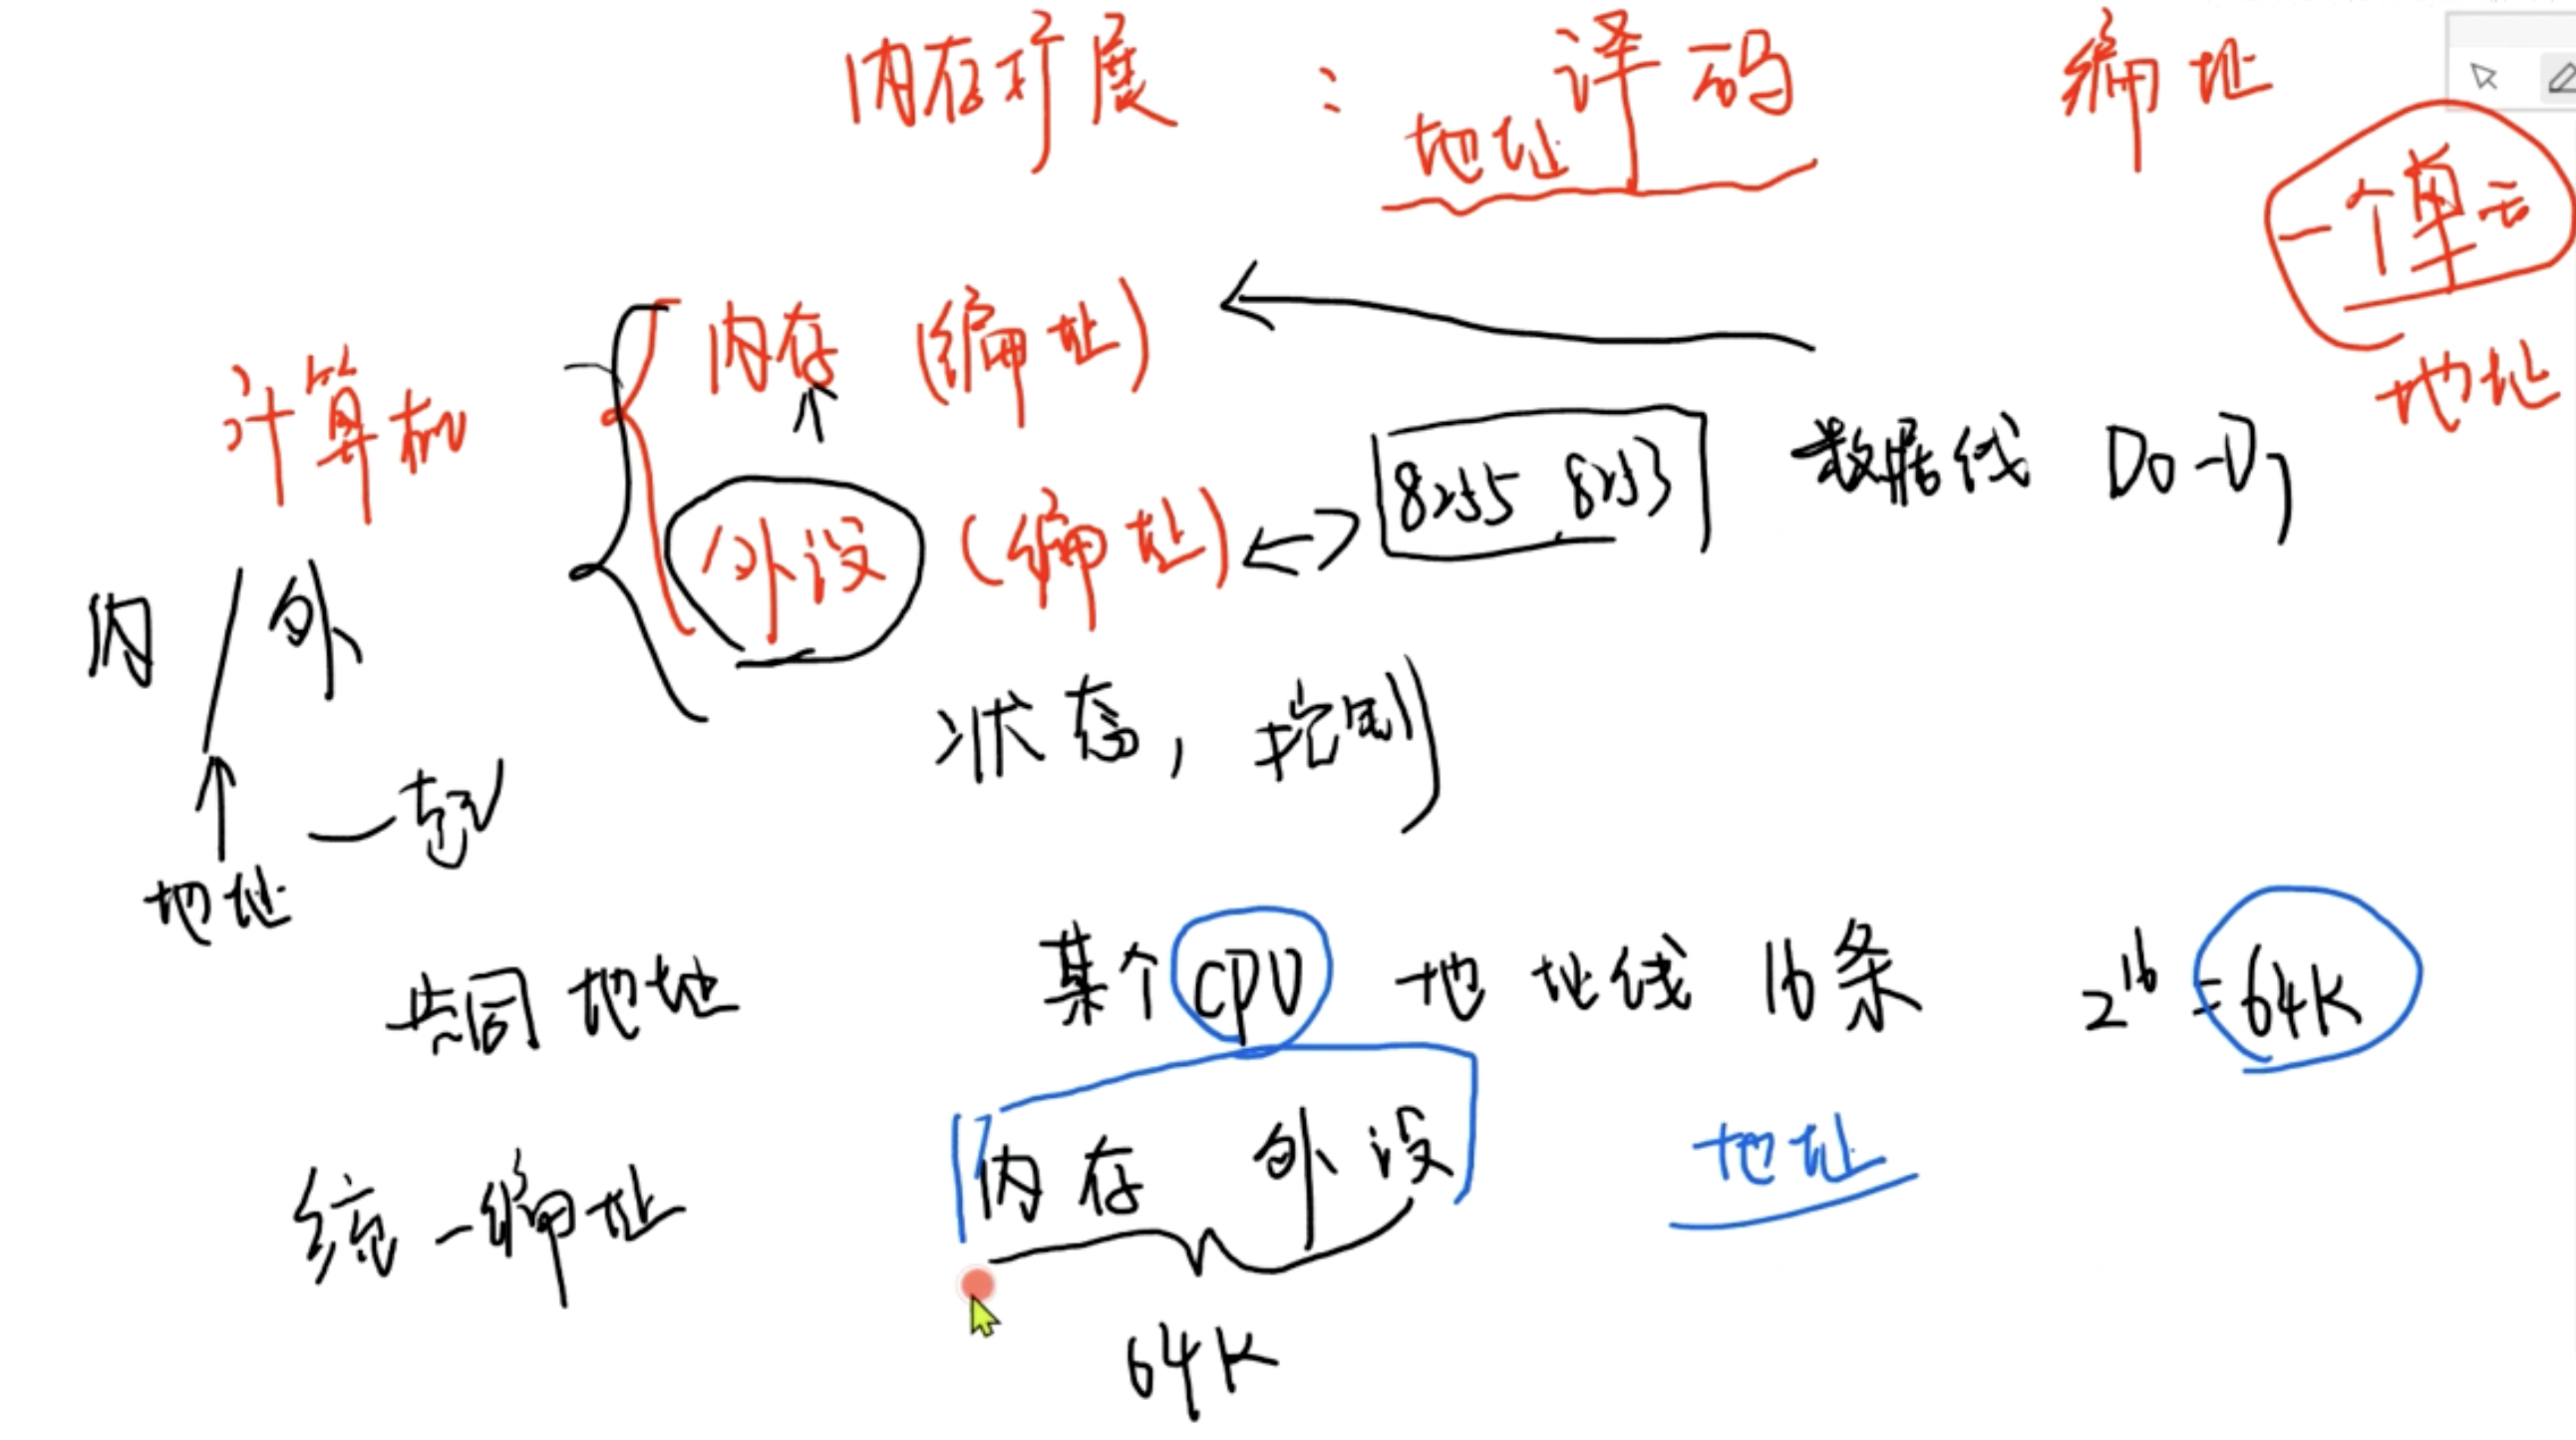 内存扩展 : 地址译码 编址
一个单元
地址
计算机 内存 (编址)
外设 (编址) 8255 8253 数据线 D0-D7
内/外
状态, 控制
地址 一起
共同地址 某个CPU 地址线 16条 2^16=64K
统一编址 内存 外设 地址
64K